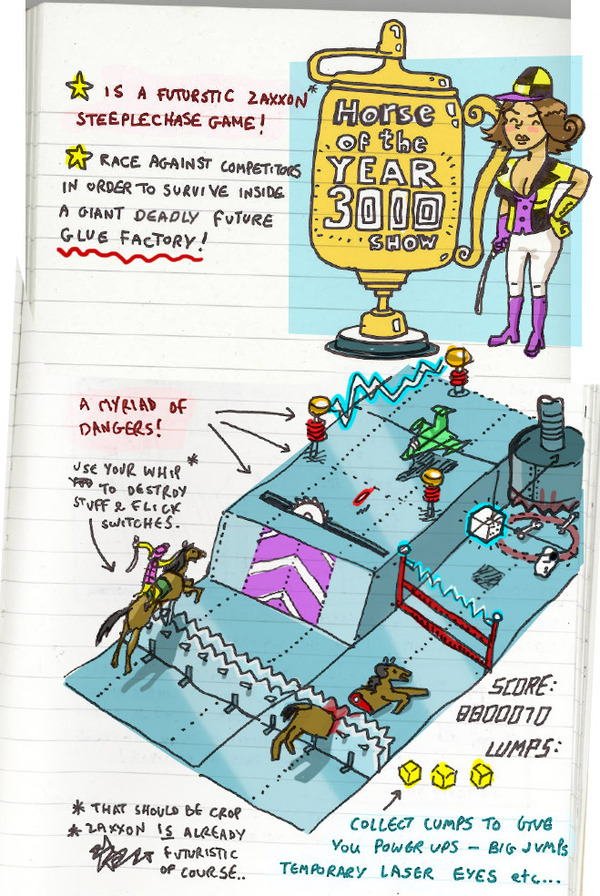 IS A FUTURSTIC ZAXXON*
STEEPLECHASE GAME!
RACE AGAINST COMPETITORS
IN ORDER TO SURVIVE INSIDE
A GIANT DEADLY FUTURE
GLUE FACTORY!
Horse
of the
YEAR
3000
SHOW
A MYRIAD OF
DANGERS!
USE YOUR WHIP*
TO DESTROY
STUFF & FLICK
SWITCHES.
SCORE:
8800070
LUMPS:
* THAT SHOULD BE CROP
* ZAXXON IS ALREADY
FUTURISTIC
OF COURSE..
COLLECT LUMPS TO GIVE
YOU POWER UPS – BIG JUMPS
TEMPORARY LASER EYES etc...